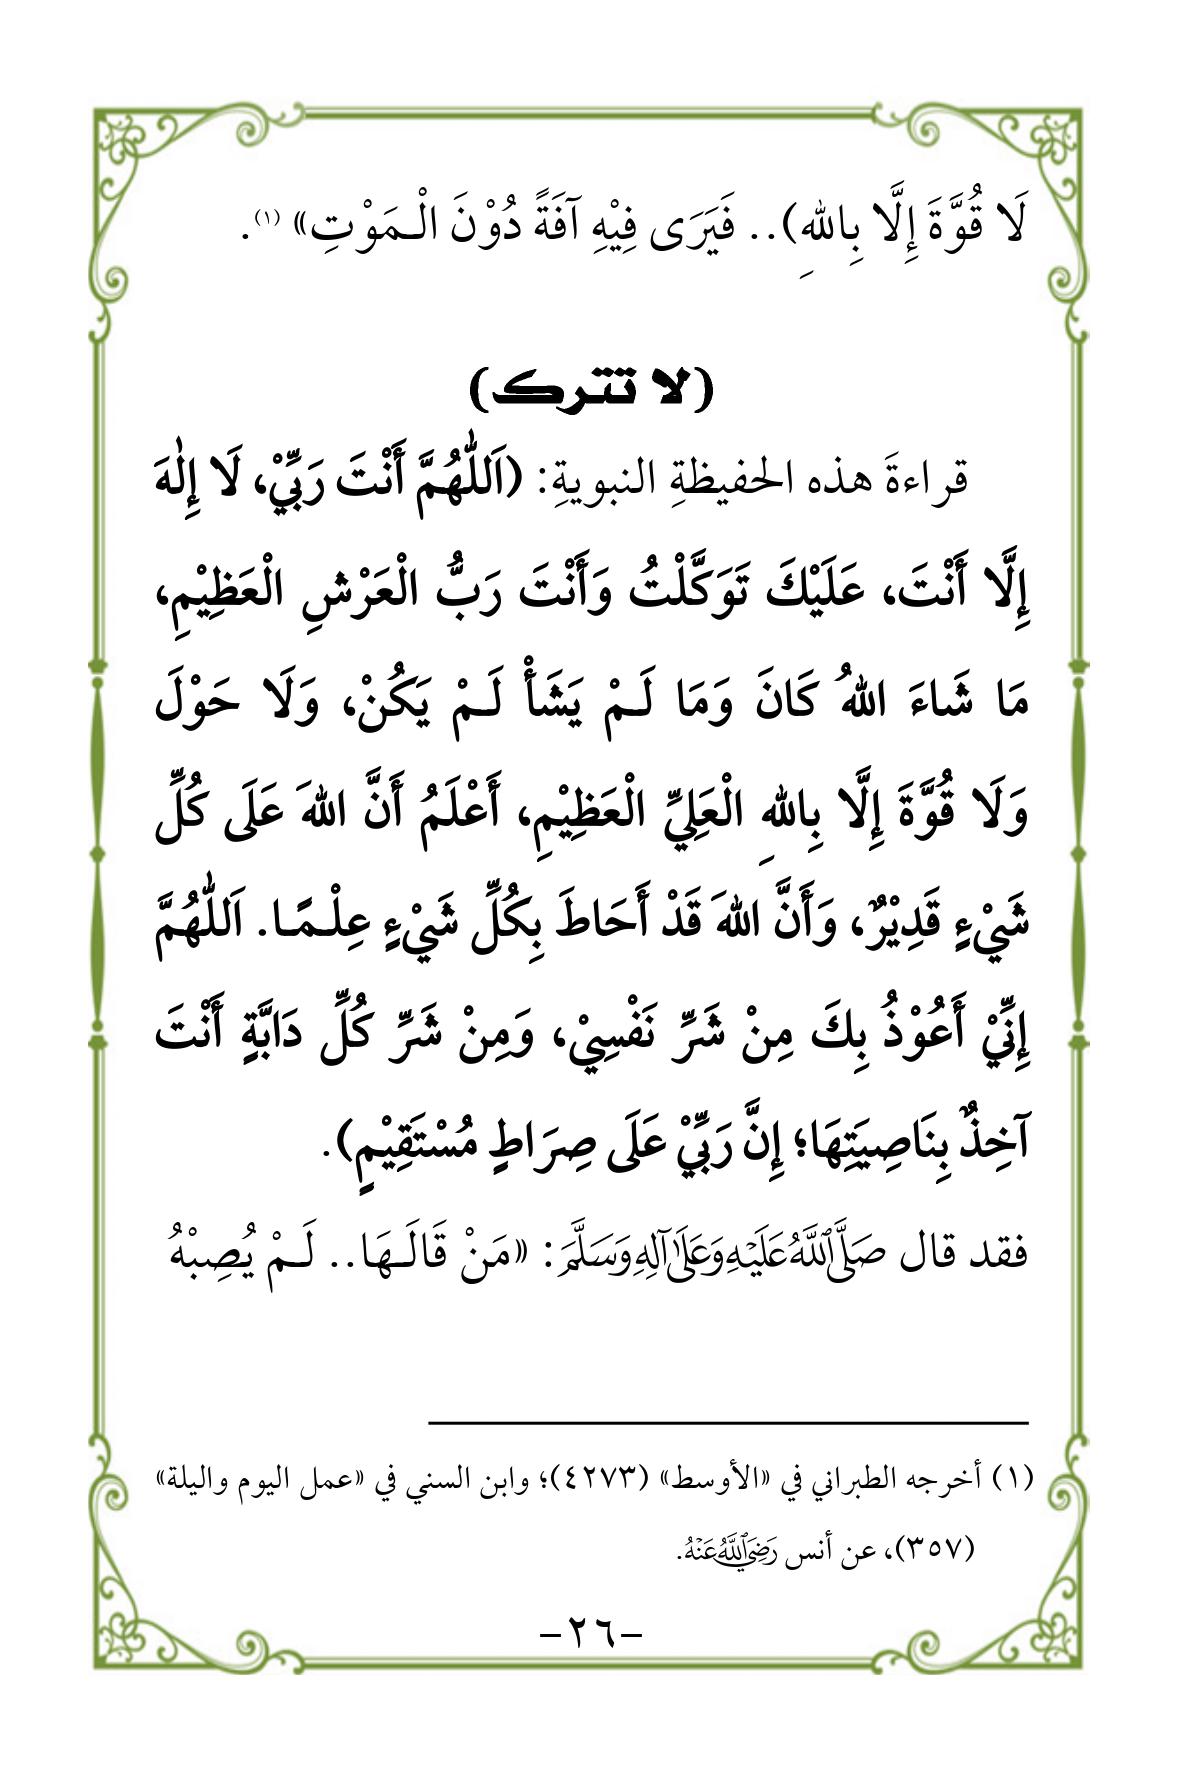 لَا قُوَّةَ إِلَّا بِاللهِ).. فَيَرَى فِيْهِ آفَةً دُوْنَ الْـمَوْتِ» (١).
(لا تترك)
قراءةَ هذه الحفيظةِ النبويةِ: (اَللّٰهُمَّ أَنْتَ رَبِّيْ، لَا إِلٰهَ
إِلَّا أَنْتَ، عَلَيْكَ تَوَكَّلْتُ وَأَنْتَ رَبُّ الْعَرْشِ الْعَظِيْمِ،
مَا شَاءَ اللهُ كَانَ وَمَا لَـمْ يَشَأْ لَـمْ يَكُنْ، وَلَا حَوْلَ
وَلَا قُوَّةَ إِلَّا بِاللهِ الْعَلِيِّ الْعَظِيْمِ، أَعْلَمُ أَنَّ اللهَ عَلَى كُلِّ
شَيْءٍ قَدِيْرٌ، وَأَنَّ اللهَ قَدْ أَحَاطَ بِكُلِّ شَيْءٍ عِلْـمًـا. اَللّٰهُمَّ
إِنِّيْ أَعُوْذُ بِكَ مِنْ شَرِّ نَفْسِيْ، وَمِنْ شَرِّ كُلِّ دَابَّةٍ أَنْتَ
آخِذٌ بِنَاصِيَتِهَا؛ إِنَّ رَبِّيْ عَلَى صِرَاطٍ مُسْتَقِيْمٍ).
فقد قال صَلَّى اللَّهُ عَلَيْهِ وَعَلَىٰ آلِهِ وَسَلَّمَ: «مَنْ قَالَـهَا.. لَـمْ يُصِبْهُ
(١) أخرجه الطبراني في «الأوسط» (٤٢٧٣)؛ وابن السني في «عمل اليوم واليلة»
(٣٥٧)، عن أنس رَضِيَ اللَّهُ عَنْهُ.
-٢٦-